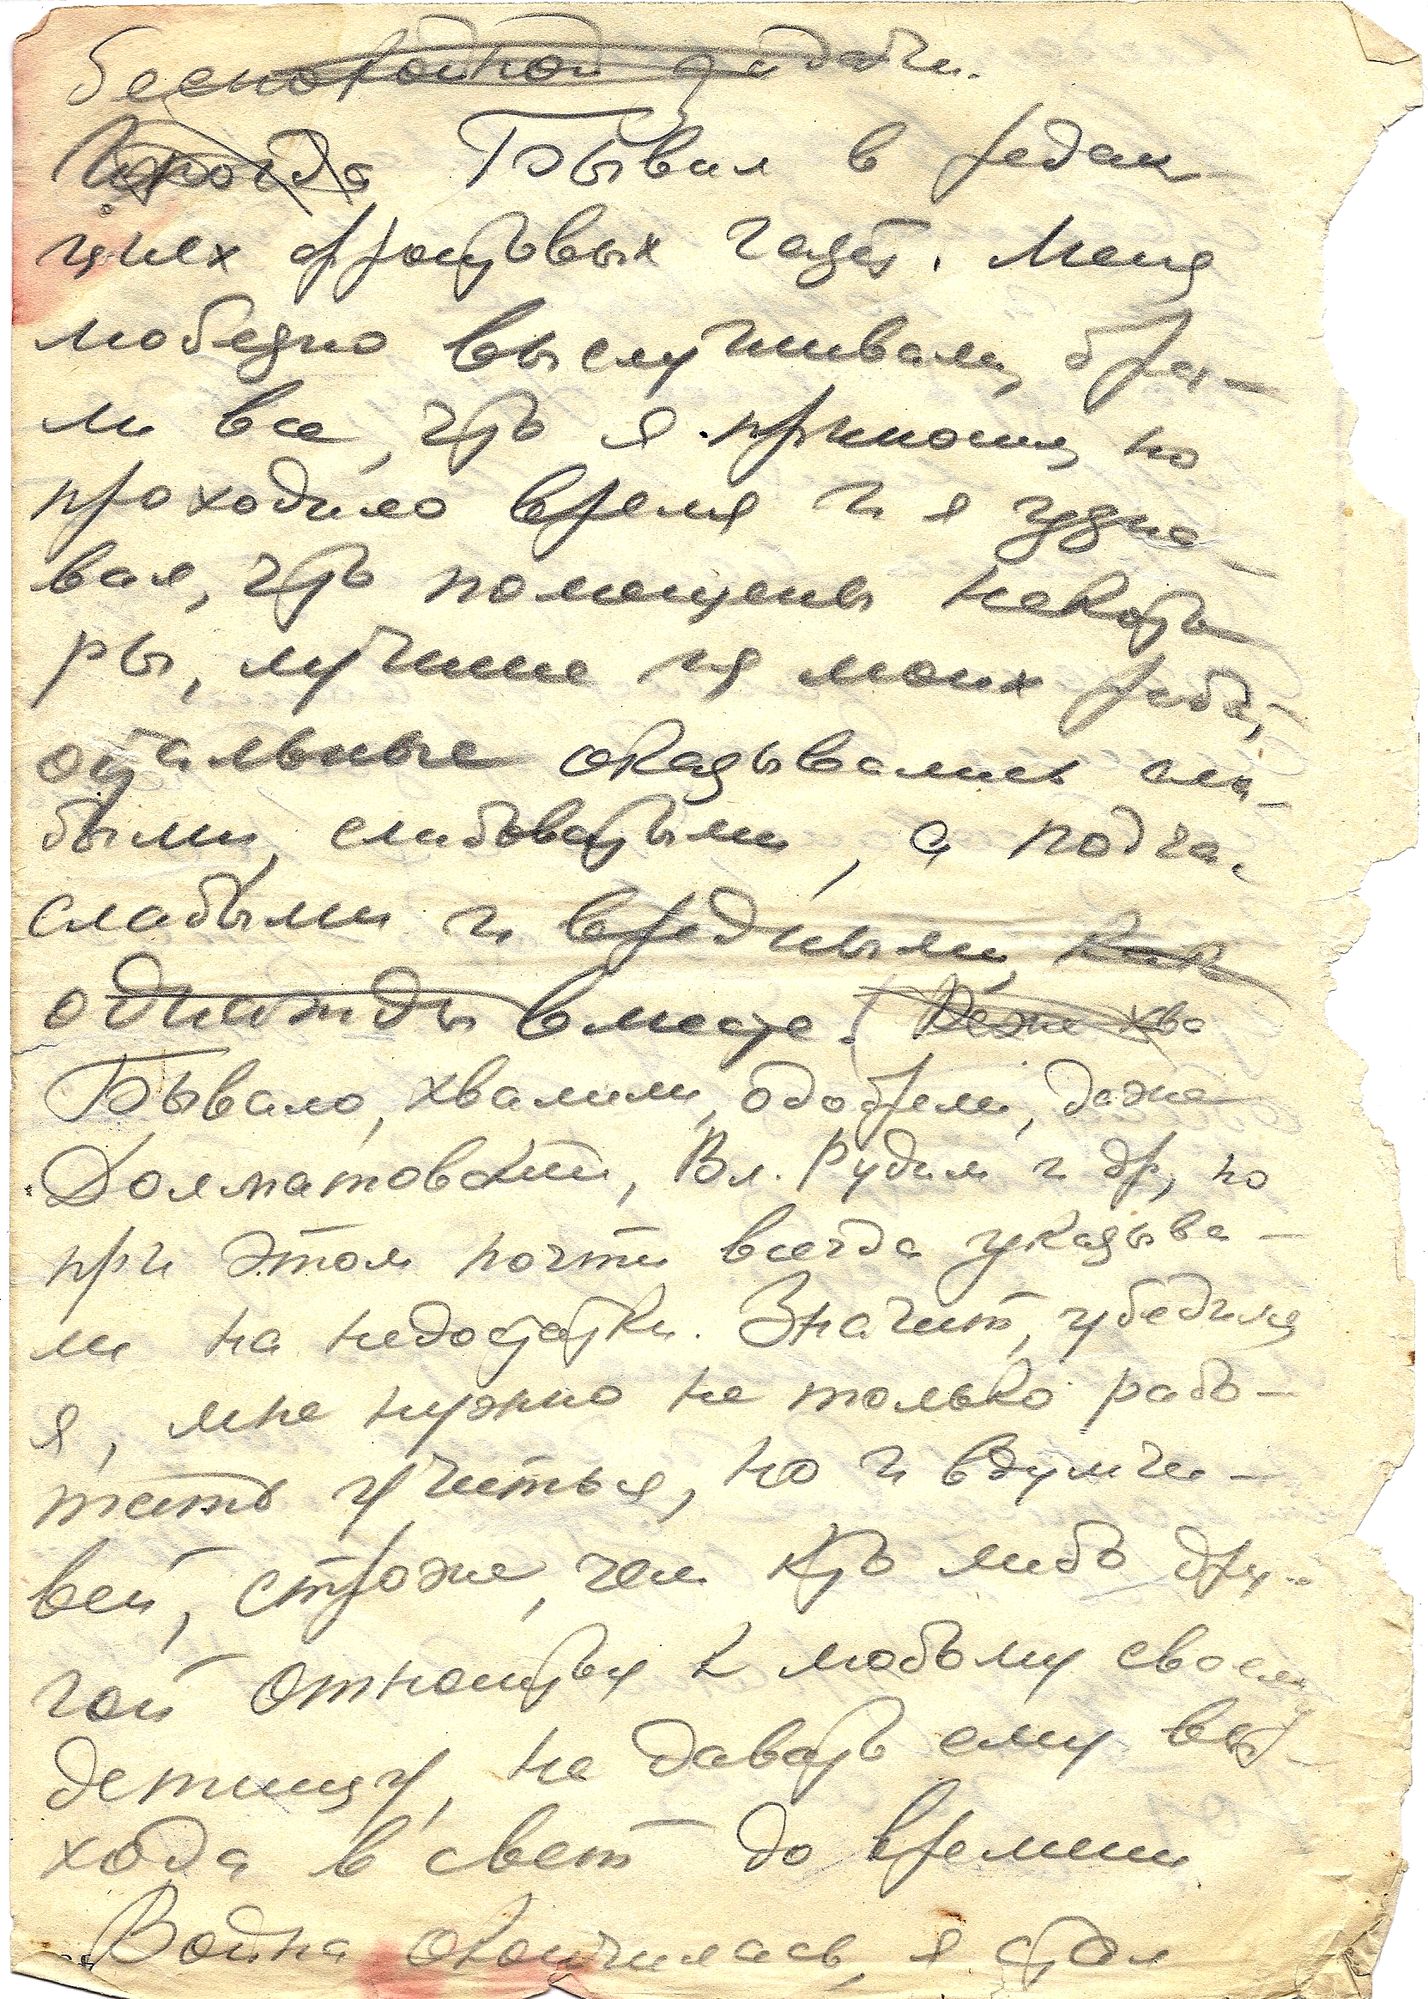 беспокойной задачи.
Иногда Бывал в редак-
циях фронтовых газет. Меня
любезно выслушивали, бра-
ли все, что я приносил, но
проходило время и я узна-
вал, что помещены некото
ры, лучшие из моих работ,
остальные оказывались сла-
быми, слабоватыми, а подча.
слабыми и вредными, как
однажды вместе. (Даже хва
Бывало, хвалили, одобряли, даже
Долматовский, Вл. Рудим и др, но
при этом почти всегда указыва-
ли на недостатки. Значит, убедился
я, мне нужно не только рабо-
тать учиться, но и вдумчи-
вей, строже, чем кто либо дру-
гой относиться к любому своему
детищу, не давать ему вы-
хода в свет до времени
Война окончилась, я стал